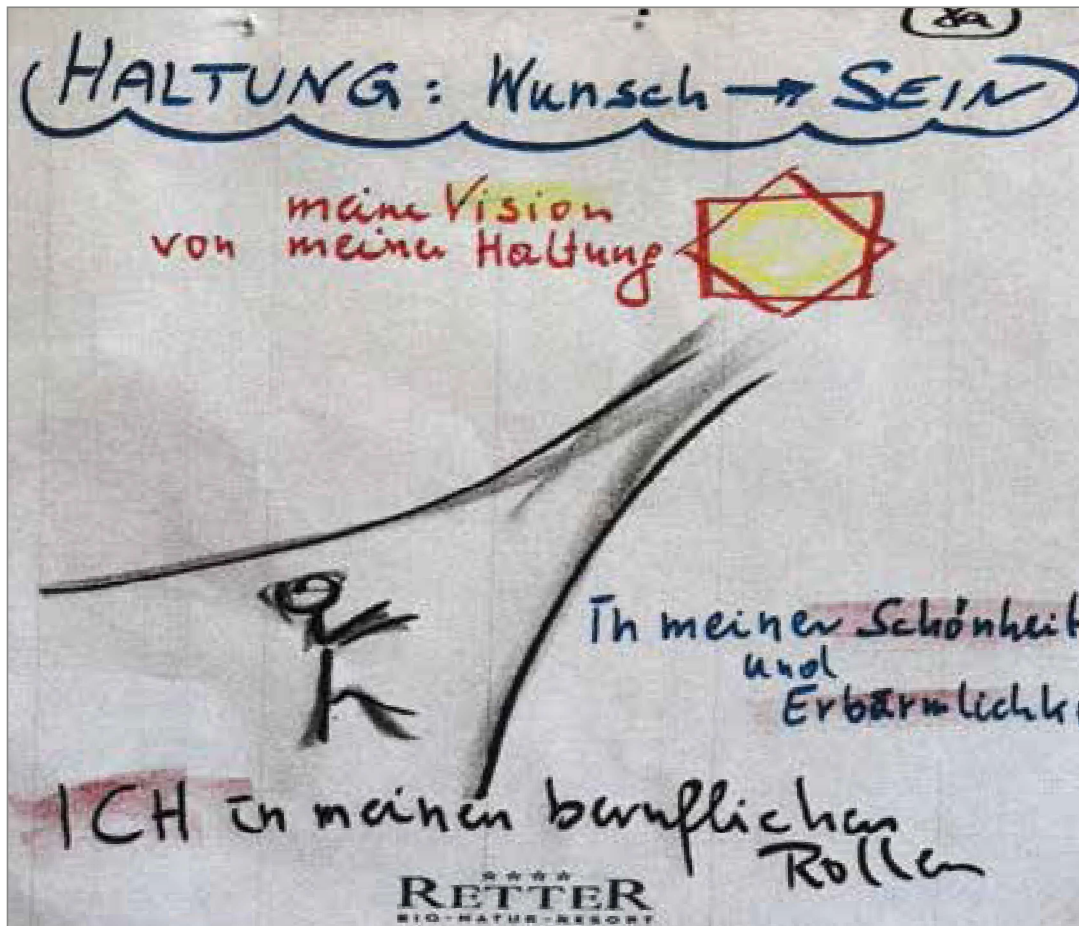 8a
HALTUNG: Wunsch → SEIN
meine Vision
von meiner Haltung
In meiner Schönheit
und
Erbärmlichk
ICH in meinen beruflichen
Rollen
RETTER
BIO-NATUR-RESORT